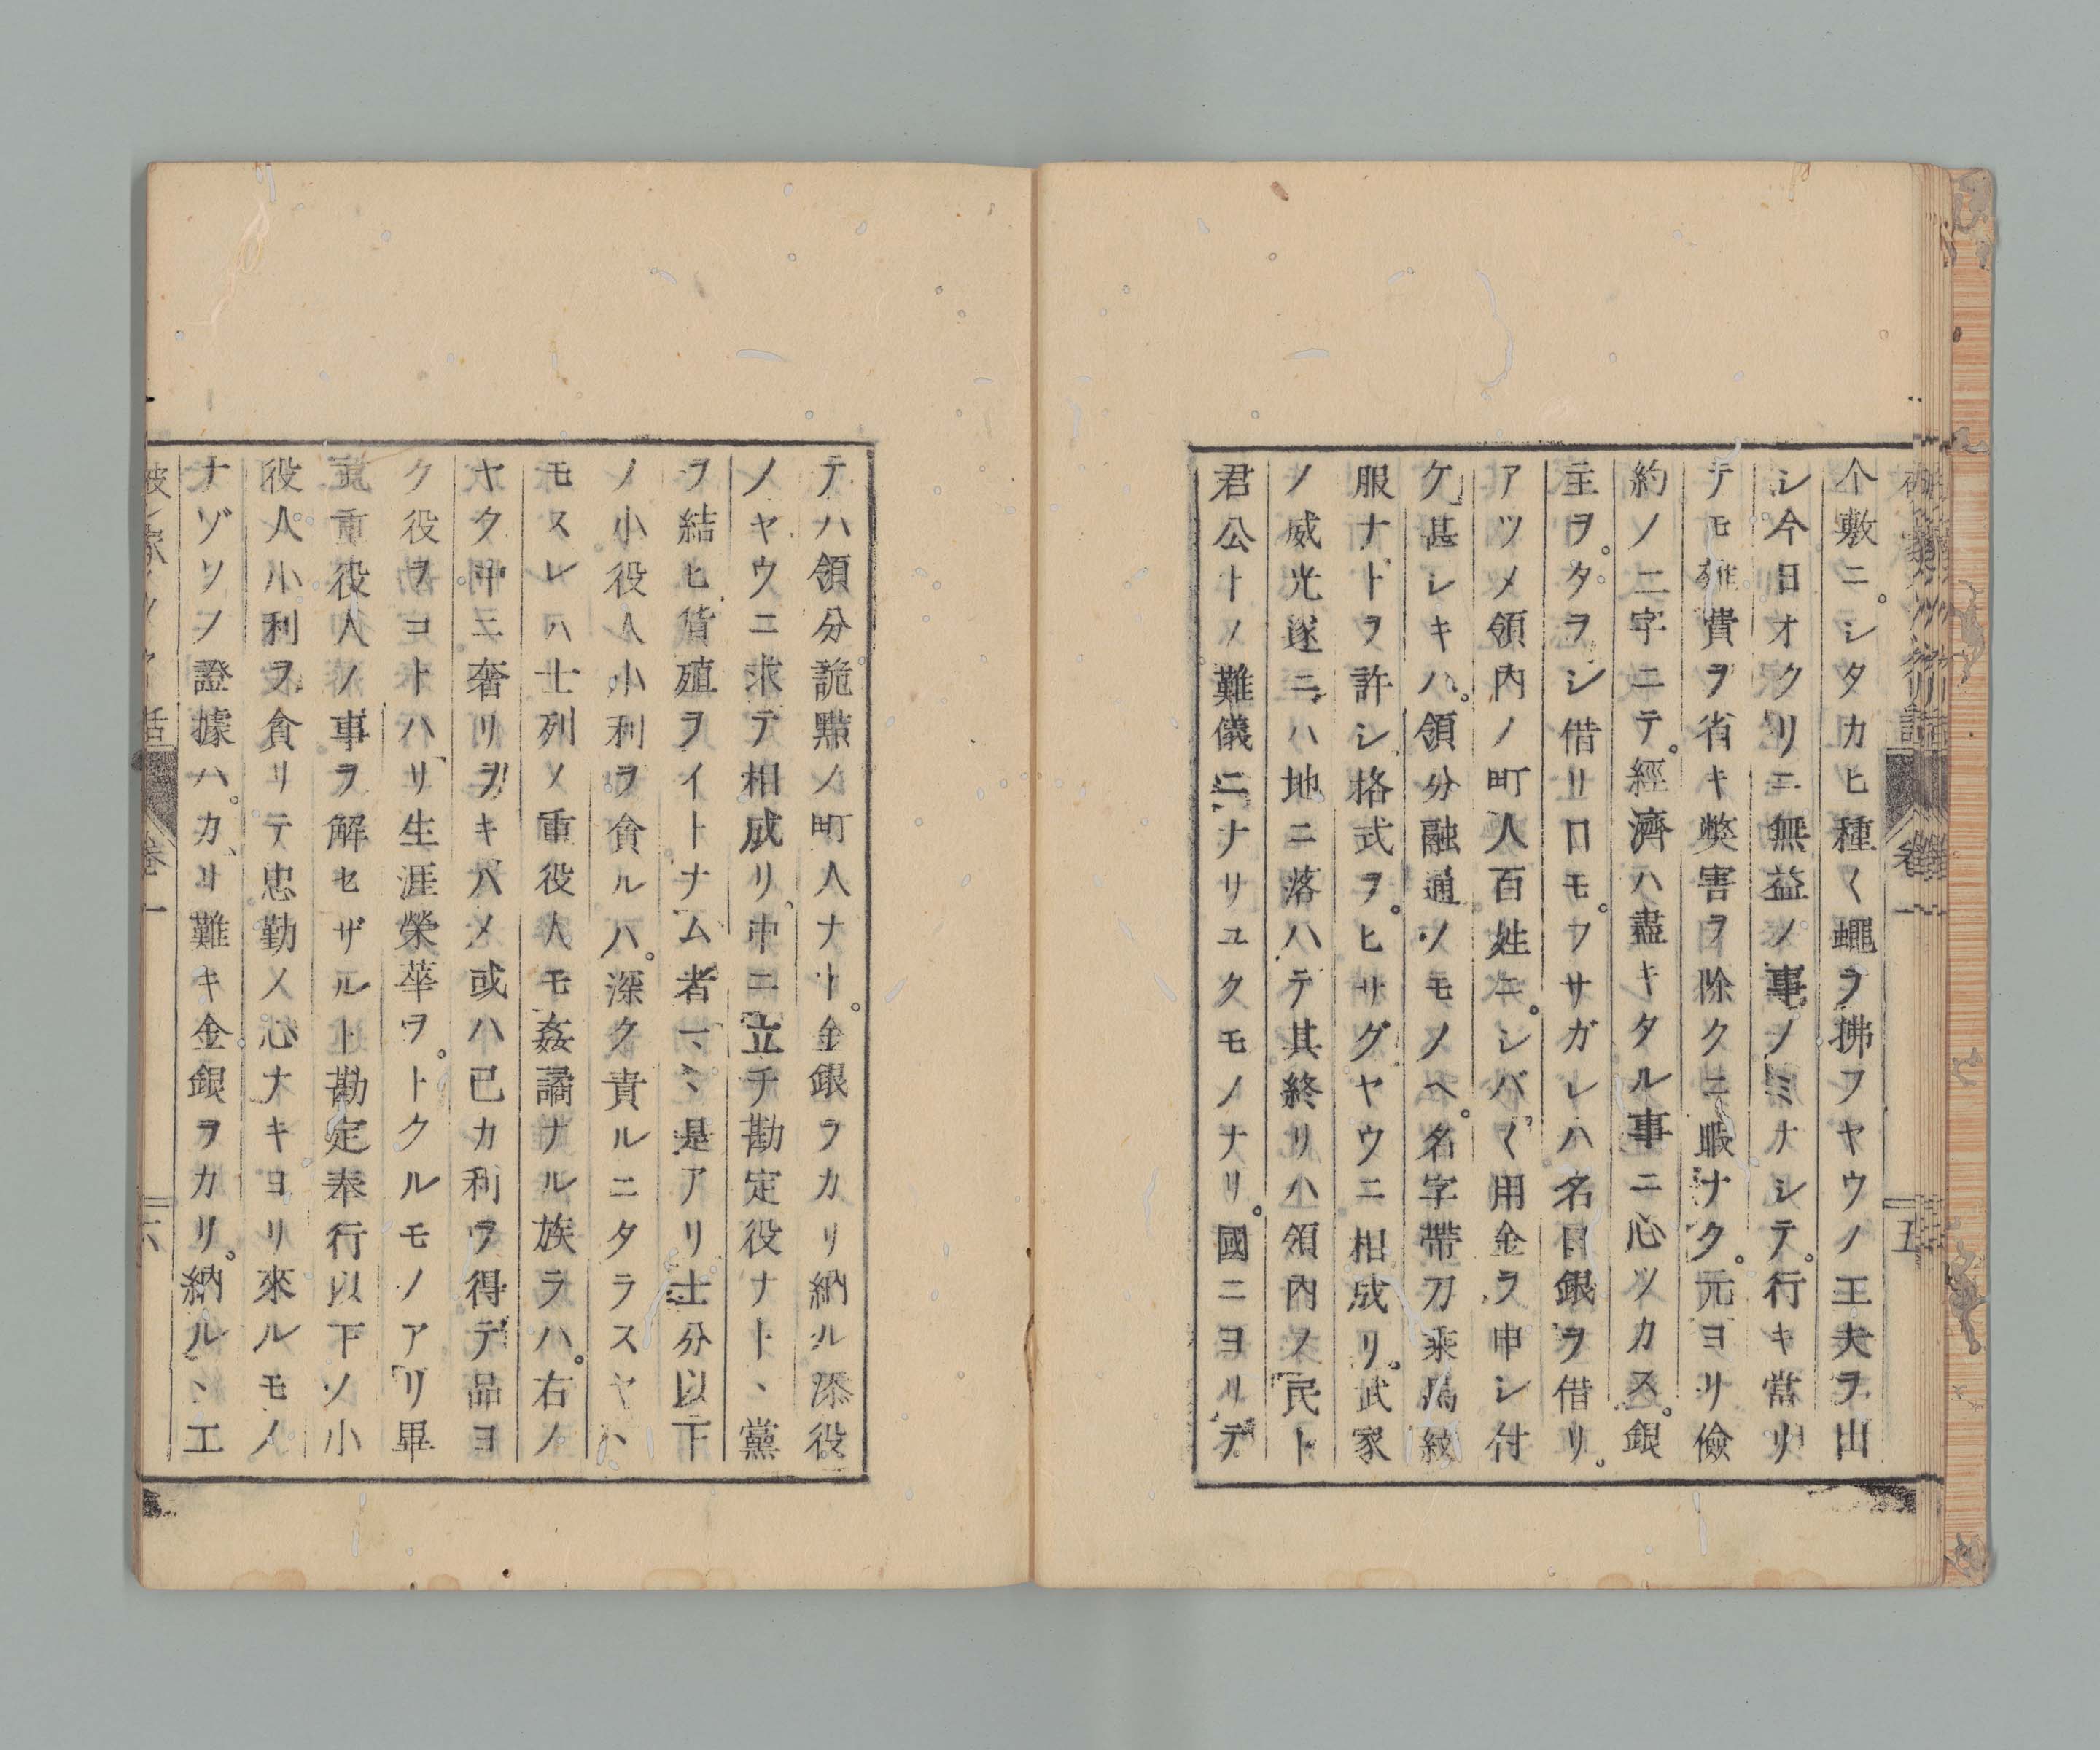 个敷ニ。シタカヒ種〱蠅ヲ拂フヤウノ工夫ヲ出
シ今日オクリニ無益ノ事ノミナシテ。行キ當リ
テモ雜費ヲ省キ弊害ヲ除クニ暇ナク。元ヨリ儉
約ノ二字ニテ。經濟ハ盡キタル事ニ心ツカス。銀
主ヲ。タヲシ借リ口モ。フサガレハ名目銀ヲ借リ。
アツメ領内ノ町人百姓ニ。シバ〱用金ヲ申シ付
ケ甚シキハ。領分融通ノモノヘ。名字帶刀乘馬紋
服ナトヲ許シ格式ヲ。ヒサグヤウニ相成リ。武家
ノ威光遂ニハ地ニ落ハテ其終リハ領内ノ民ト
君公トノ難儀ニナリユクモノナリ。國ニヨリテ
卷一
五
テハ領分詭黠ノ町人ナト。金銀ヲカリ納ル添役
ノヤウニ求テ相成リ。中ニ立チ勘定役ナト、黨
ヲ結ヒ貨殖ヲイトナム者一、是アリ士分以下
ノ小役人小利ヲ貪ルハ。深ク責ルニタラスヤ、
モスレハ士列ノ重役人モ姦譎ナル族ラハ。右ノ
ヤク中ニ奢リヲキハメ或ハ己カ利ヲ得テ品ヨ
ク役ヲヨトハリ生涯榮華ヲ。トクルモノアリ畢
竟重役人ノ事ヲ解セザルト勘定奉行以下ノ小
役人小利ヲ貪リテ忠勤ノ心ナキヨリ來ルモノ
ナゾソノ證據ハ。カリ難キ金銀ヲカリ。納ル、工
卷一
六